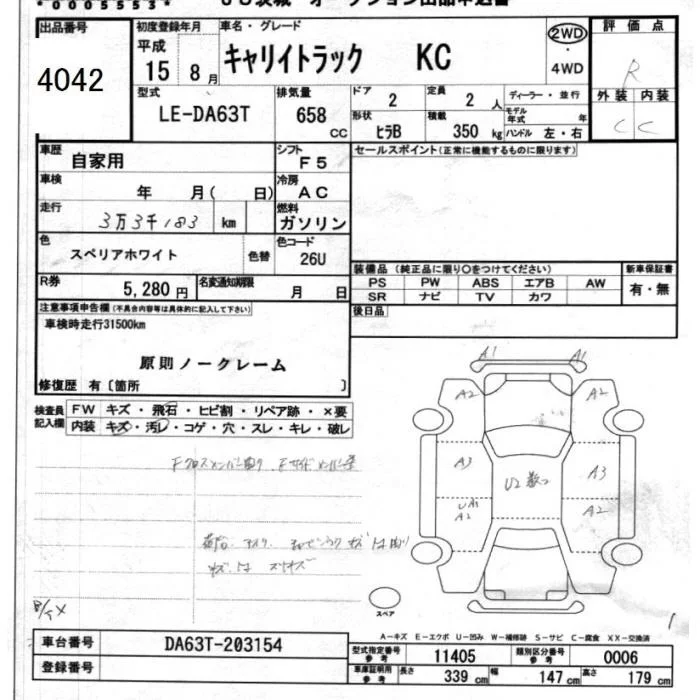 *0005553*
出品番号 初度登録年月 車名・グレード 2WD 評価点
4042 平成 15年 8月 キャリイトラック KC 4WD R
型式 排気量 ドア 2 定員 2人 ディーラー・並行 外装 内装
LE-DA63T 658cc 形状 ヒラB 積載 350kg モデル年式 年 ハンドル 左・右 C C
車歴 自家用 シフト F5 セールスポイント(正常に機能するものに限ります)
車検 年 月( 日) 冷房 AC
走行 3万3千183 km 燃料 ガソリン
色 スペリアホワイト 色替 色コード 26U
装備品(純正品に限り○をつけてください) 新車保証書
R券 5,280円 名変通知期限 月 日 PS PW ABS エアB AW 有・無
SR ナビ TV カワ
注意事項申告欄(不具合内容等は具体的に記入して下さい) 後日品
車検時走行31500km
原則ノークレーム
修復歴 有〔箇所 〕
検査員記入欄 FW キズ・飛石・ヒビ割・リペア跡・×要
内装 キズ・汚レ・コゲ・穴・スレ・キレ・破レ
A1 A1
A2 A2
A3 U2 A3
UA1 A2 A2
スペア
A-キズ E-エクボ U-凹み W-補修跡 S-サビ C-腐食 XX-交換済
車台番号 DA63T-203154 型式指定番号 参考 11405 類別区分番号 参考 0006
登録番号 車庫証明用 参考 長さ 339cm 幅 147cm 高さ 179cm